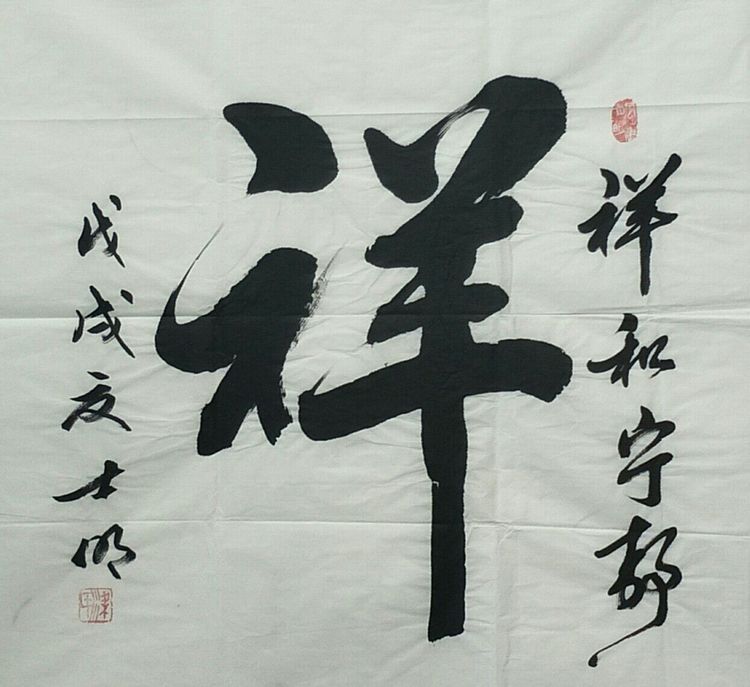 祥和宁静
祥
戊戌夏士明